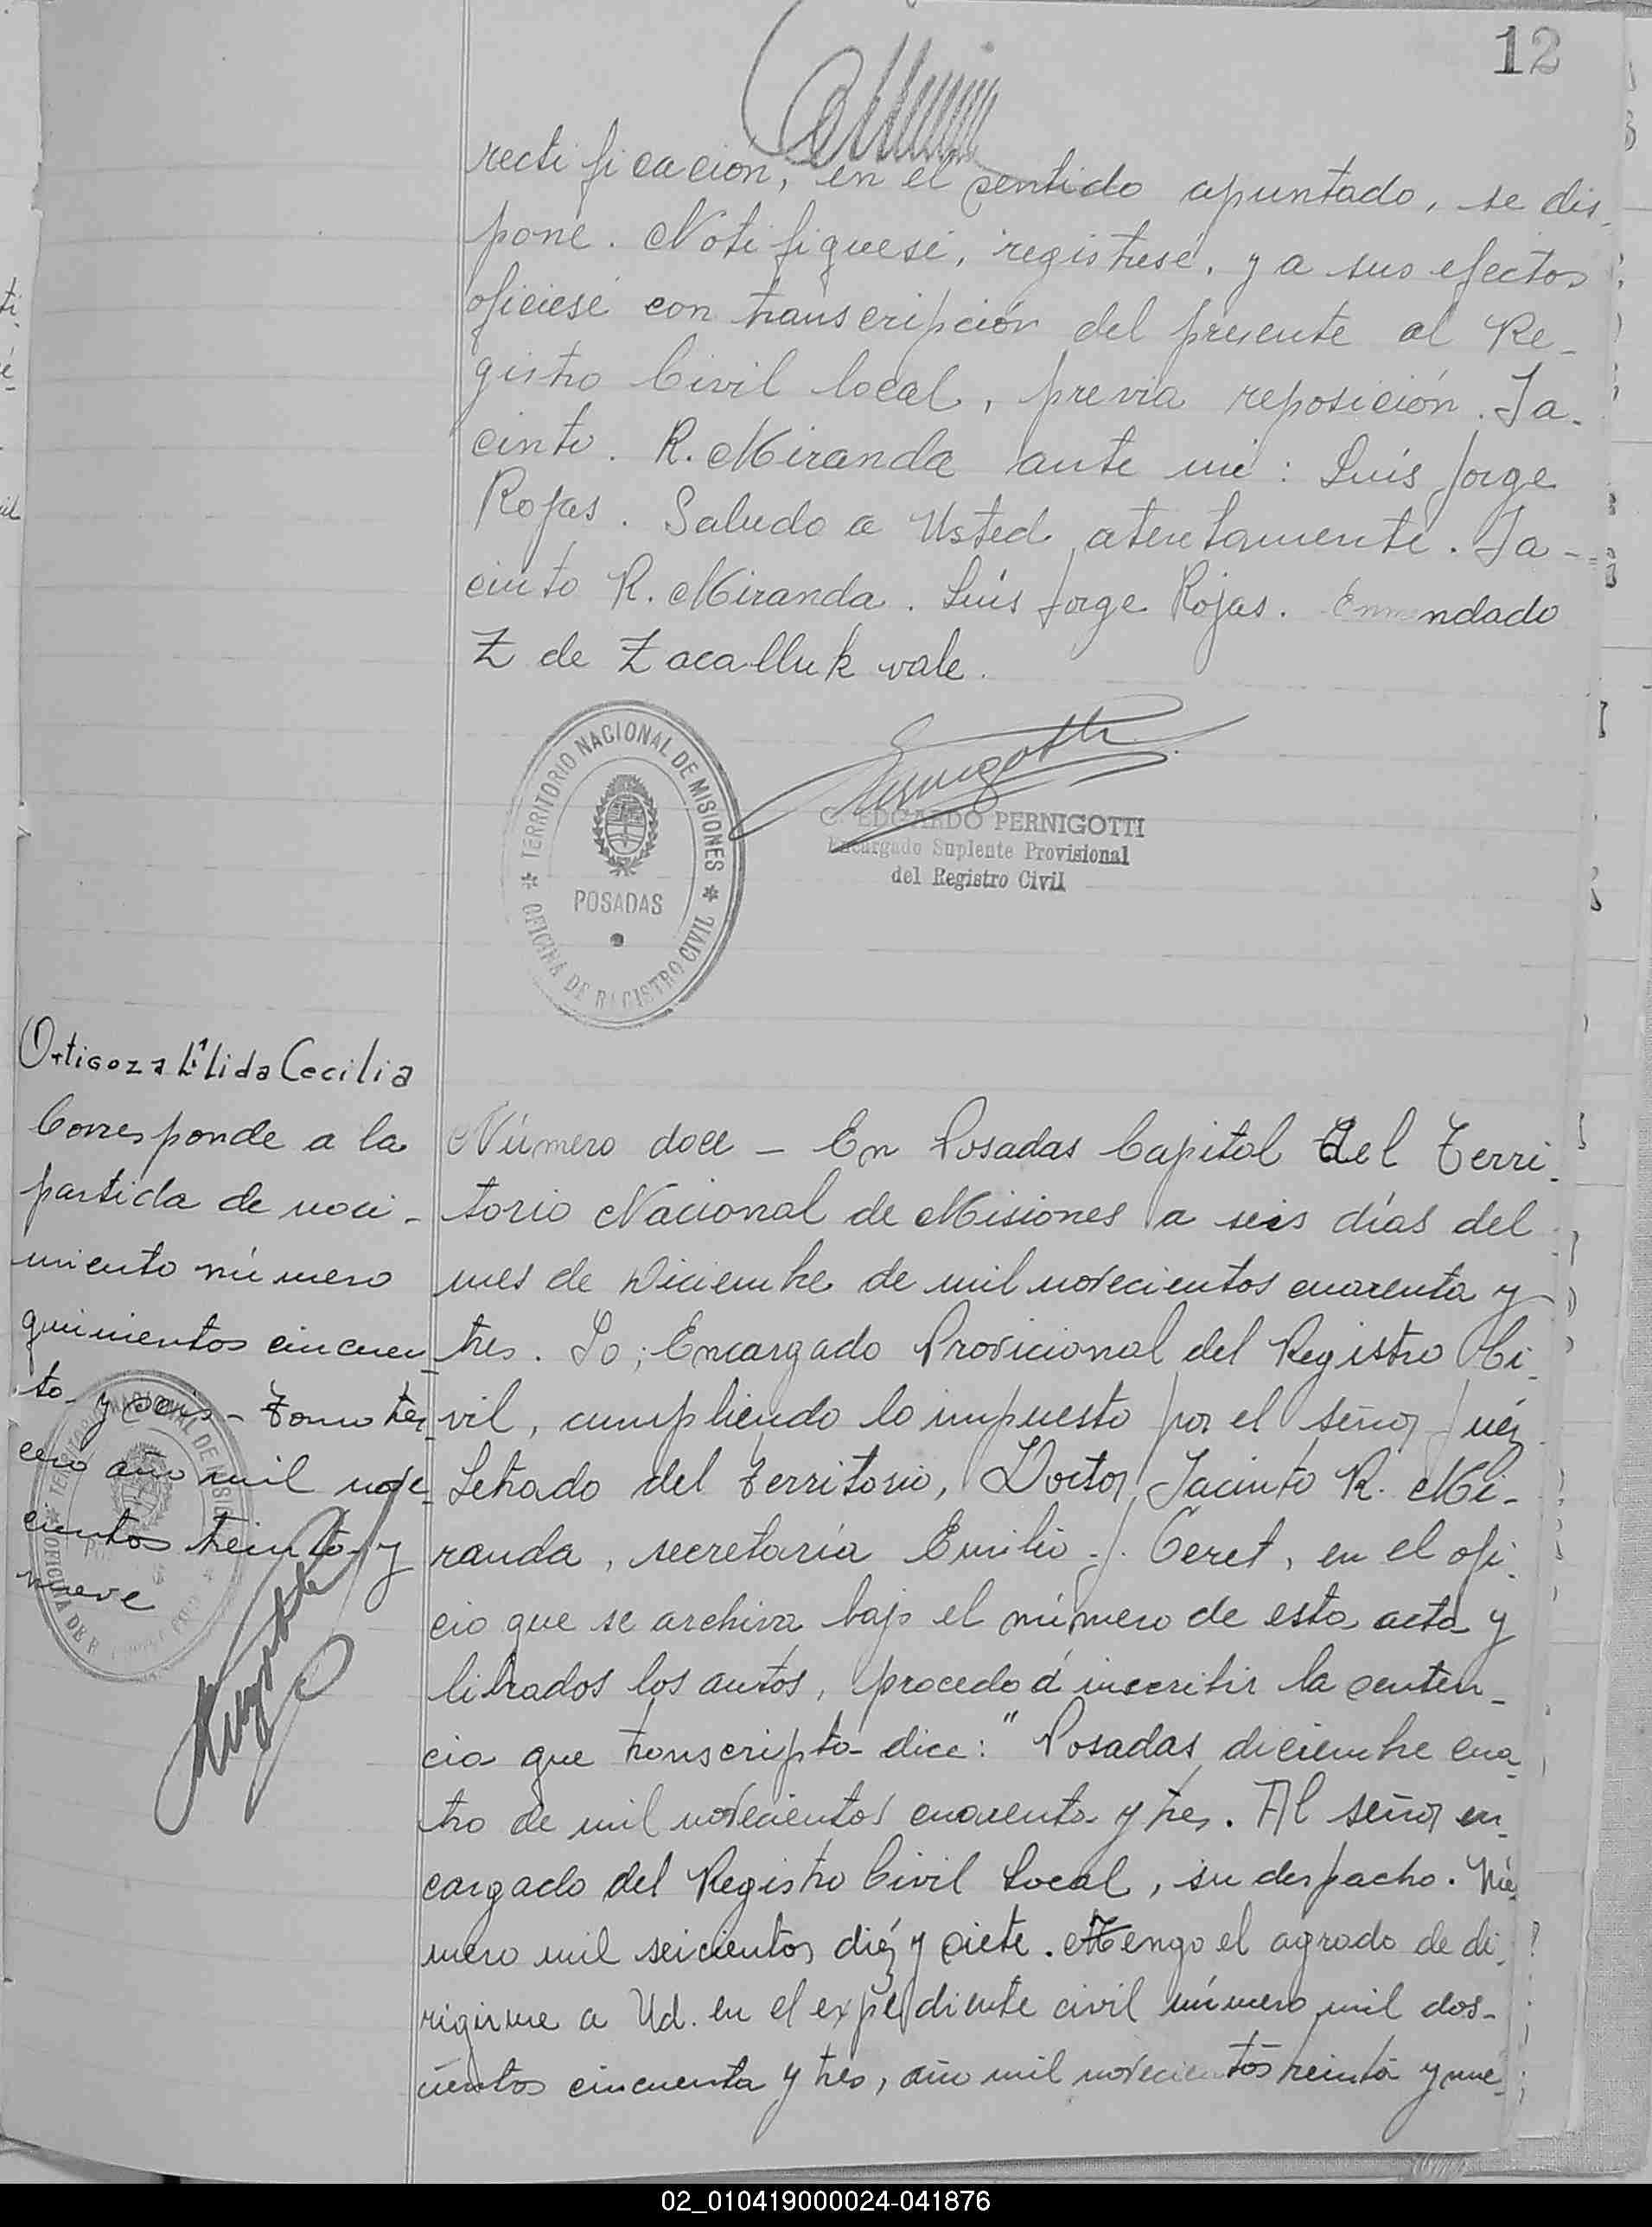 12
rectificacion, en el sentido apuntado, se dis-
pone. Notifiquese, registrese, y a sus efectos
oficiese con transcripción del presente al Re-
gistro Civil local, previa reposición. Ja-
cinto. R. Miranda ante mi: Luis Jorge
Rojas. Saludo a Usted atentamente. Ja-
cinto R. Miranda. Luis Jorge Rojas. Enmendado
Z de Zacalluk vale.
TERRITORIO NACIONAL DE MISIONES
POSADAS
OFICINA DE REGISTRO CIVIL
Pernigotti
C. EDGARDO PERNIGOTTI
Encargado Suplente Provisional
del Registro Civil
Ortigoza Elida Cecilia
Corresponde a la
partida de naci-
miento número
quinientos cincuen-
ta y seis - tomo ter-
cero año mil nove-
cientos treinta y
nueve
Número doce - En Posadas Capital del Terri-
torio Nacional de Misiones a seis días del
mes de Diciembre de mil novecientos cuarenta y
tres. Yo, Encargado Provicional del Registro Ci-
vil, cumpliendo lo impuesto por el señor Juéz
Letrado del Territorio, Doctor Jacinto R. Mi-
randa, secretaría Emilio J. Ceret, en el ofi-
cio que se archiva bajo el número de esta acta y
librados los autos, procedo á inscribir la senten-
cia que transcripta dice: "Posadas, diciembre cua-
tro de mil novecientos cuarenta y tres. Al señor en-
cargado del Registro Civil Local, su despacho. Nú-
mero mil seicientos diéz y siete. Tengo el agrado de di-
rigirme a Ud. en el expediente civil número mil dos-
cientos cincuenta y tres, año mil novecientos treinta y nue-
02_010419000024-041876